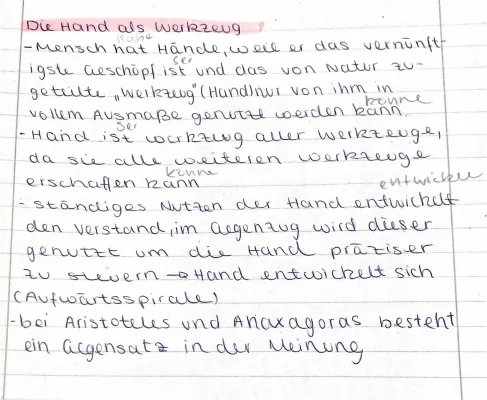 Die Hand als Werkzeug
habe
- Mensch hat Hände, weil er das vernünft-
sei
igste Geschöpf ist und das von Natur zu-
geteilte „Werkzeug" (Hand) nur von ihm in
könne
vollem Ausmaße genutzt werden kann.
sei
- Hand ist Werkzeug aller Werkzeuge,
da sie alle weiteren Werkzeuge
könne
erschaffen kann
entwickle
- ständiges Nutzen der Hand entwickelt
den Verstand, im Gegenzug wird dieser
genutzt um die Hand präziser
zu steuern → Hand entwickelt sich
(Aufwärtsspirale)
- bei Aristoteles und Anaxagoras besteht
ein Gegensatz in der Meinung